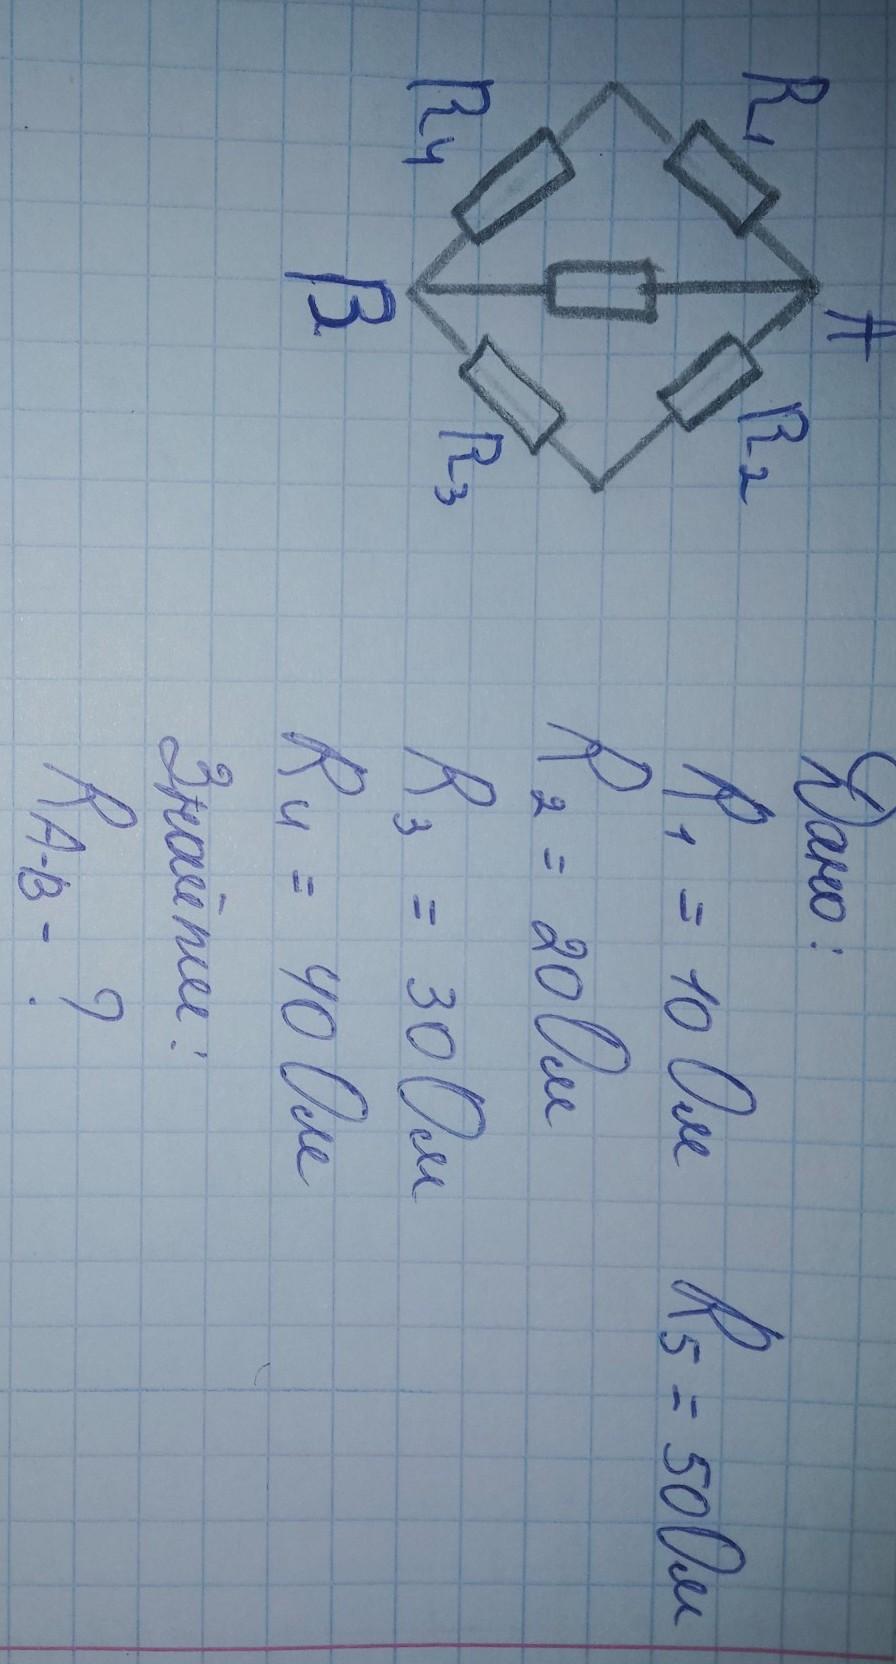 A
R₁
R₂
R₄
R₃
B
Дано:
R₁ = 10 Ом R₅ = 50 Ом
R₂ = 20 Ом
R₃ = 30 Ом
R₄ = 40 Ом
Знайти:
R A-B - ?